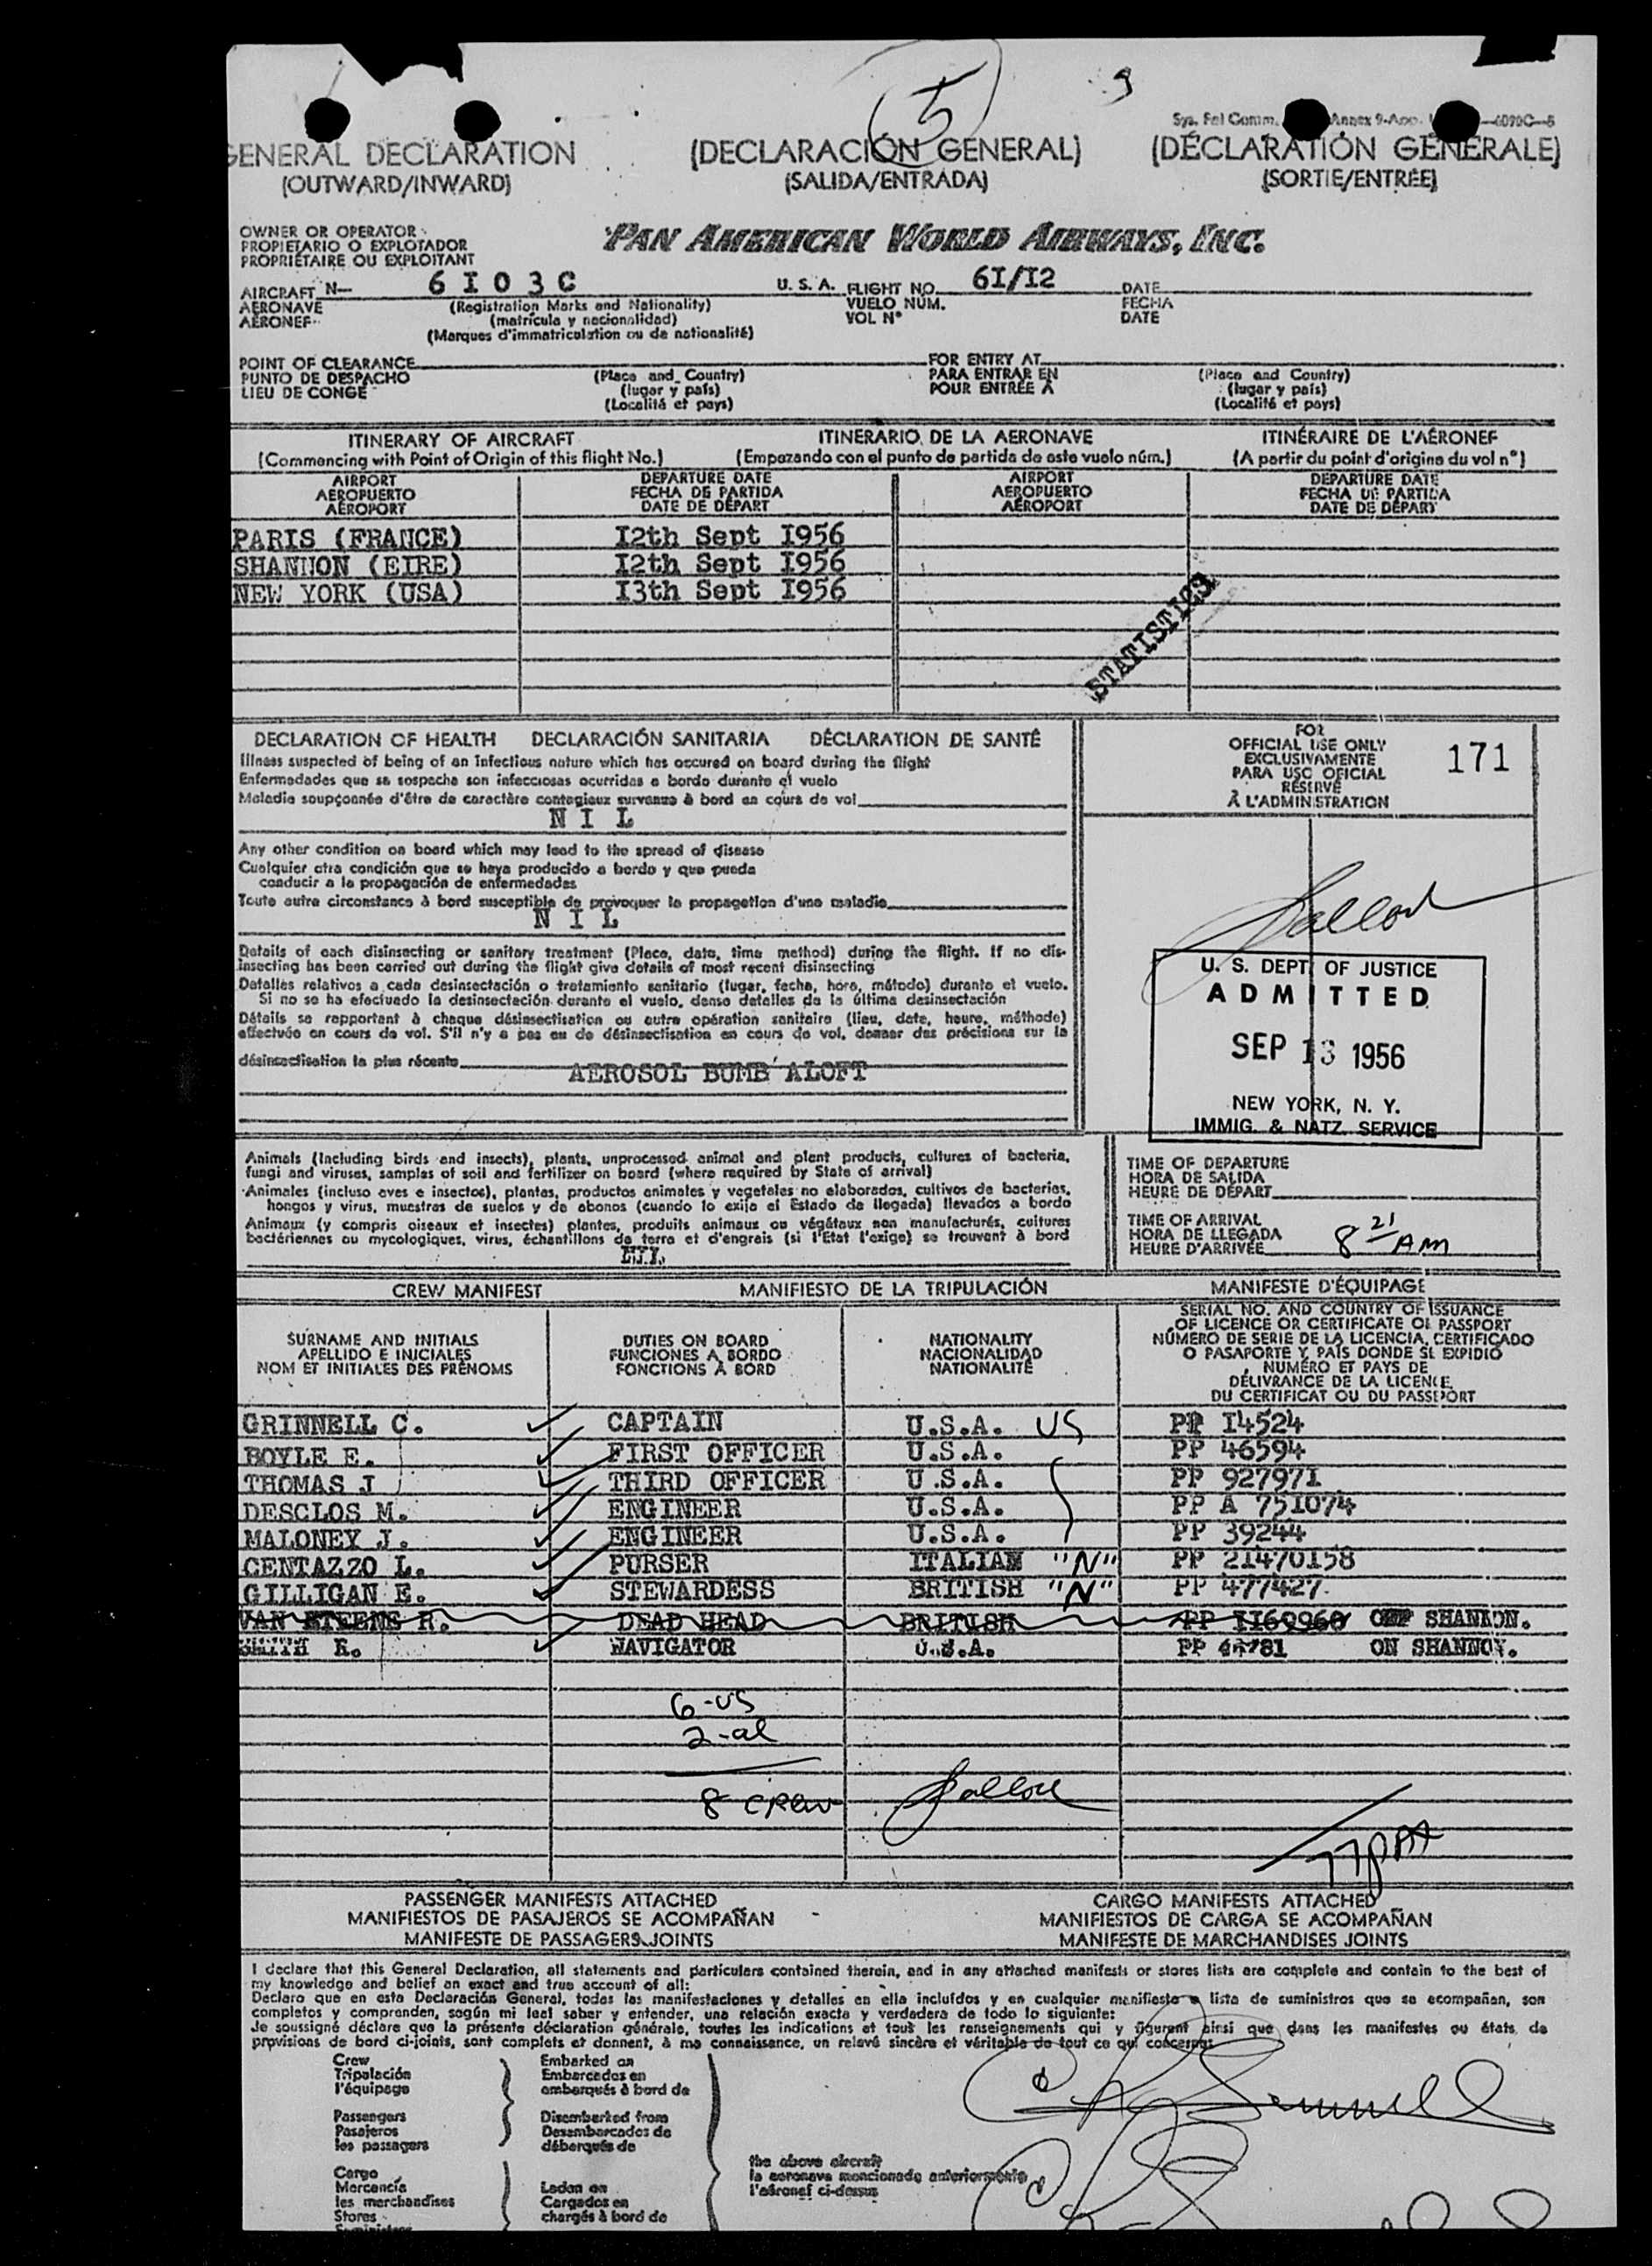 5
9
Sys. Fal Comm. Annex 9-App.
GENERAL DECLARATION (DECLARACIÓN GENERAL) (DÉCLARATION GÉNÉRALE)
(OUTWARD/INWARD) (SALIDA/ENTRADA) (SORTIE/ENTRÉE)
OWNER OR OPERATOR
PROPIETARIO O EXPLOTADOR
PROPRIÉTAIRE OU EXPLOITANT
PAN AMERICAN WORLD AIRWAYS, INC.
AIRCRAFT N— 6I03C U. S. A. FLIGHT NO. 6I/I2 DATE
AERONAVE (Registration Marks and Nationality) VUELO NÚM. FECHA
AÉRONEF (matrícula y nacionalidad) VOL N° DATE
(Marques d'immatriculation ou de nationalité)
POINT OF CLEARANCE FOR ENTRY AT
PUNTO DE DESPACHO (Place and Country) PARA ENTRAR EN (Place and Country)
LIEU DE CONGÉ (lugar y país) POUR ENTRÉE À (lugar y país)
(Localité et pays) (Localité et pays)
ITINERARY OF AIRCRAFT ITINERARIO DE LA AERONAVE ITINÉRAIRE DE L'AÉRONEF
(Commencing with Point of Origin of this flight No.) (Empezando con el punto de partida de este vuelo núm.) (A partir du point d'origine du vol n°)
AIRPORT DEPARTURE DATE AIRPORT DEPARTURE DATE
AEROPUERTO FECHA DE PARTIDA AEROPUERTO FECHA DE PARTIDA
AÉROPORT DATE DE DÉPART AÉROPORT DATE DE DÉPART
PARIS (FRANCE) I2th Sept I956
SHANNON (EIRE) I2th Sept I956
NEW YORK (USA) I3th Sept I956
STATISTICS
DECLARATION OF HEALTH DECLARACIÓN SANITARIA DÉCLARATION DE SANTÉ
Illness suspected of being of an infectious nature which has occured on board during the flight
Enfermedades que se sospecha son infecciosas ocurridas a bordo durante el vuelo
Maladie soupçonnée d'être de caractère contagieux survenue à bord en cours de vol
N I L
Any other condition on board which may lead to the spread of disease
Cualquier otra condición que se haya producido a bordo y que pueda
conducir a la propagación de enfermedades
Toute autre circonstance à bord susceptible de provoquer la propagation d'une maladie
N I L
Details of each disinsecting or sanitary treatment (Place, date, time method) during the flight. If no dis-
insecting has been carried out during the flight give details of most recent disinsecting
Detalles relativos a cada desinsectación o tratamiento sanitario (lugar, fecha, hora, método) durante el vuelo.
Si no se ha efectuado la desinsectación durante el vuelo, dense detalles de la última desinsectación
Détails se rapportant à chaque désinsectisation ou autre opération sanitaire (lieu, date, heure, méthode)
effectuée en cours de vol. S'il n'y a pas eu de désinsectisation en cours de vol, donner des précisions sur la
désinsectisation la plus récente
AEROSOL BUMB ALOFT
FOR
OFFICIAL USE ONLY
EXCLUSIVAMENTE
PARA USO OFICIAL
RÉSERVÉ
À L'ADMINISTRATION
171
Ballou
U. S. DEPT OF JUSTICE
ADMITTED
SEP 13 1956
NEW YORK, N. Y.
IMMIG. & NATZ. SERVICE
Animals (Including birds and insects), plants, unprocessed animal and plant products, cultures of bacteria,
fungi and viruses, samples of soil and fertilizer on board (where required by State of arrival)
Animales (incluso aves e insectos), plantas, productos animales y vegetales no elaborados, cultivos de bacterias,
hongos y virus, muestras de suelos y de abonos (cuando lo exija el Estado de llegada) llevados a bordo
Animaux (y compris oiseaux et insectes) plantes, produits animaux ou végétaux non manufacturés, cultures
bactériennes ou mycologiques, virus, échantillons de terre et d'engrais (si l'Etat l'exige) se trouvant à bord
NIL
TIME OF DEPARTURE
HORA DE SALIDA
HEURE DE DÉPART
TIME OF ARRIVAL
HORA DE LLEGADA
HEURE D'ARRIVÉE 8 21 AM
CREW MANIFEST MANIFIESTO DE LA TRIPULACIÓN MANIFESTE D'ÉQUIPAGE
SURNAME AND INITIALS
APELLIDO E INICIALES
NOM ET INITIALES DES PRÉNOMS
DUTIES ON BOARD
FUNCIONES A BORDO
FONCTIONS À BORD
NATIONALITY
NACIONALIDAD
NATIONALITÉ
SERIAL NO. AND COUNTRY OF ISSUANCE
OF LICENCE OR CERTIFICATE OR PASSPORT
NÚMERO DE SERIE DE LA LICENCIA, CERTIFICADO
O PASAPORTE Y PAÍS DONDE SE EXPIDIÓ
NUMÉRO ET PAYS DE
DÉLIVRANCE DE LA LICENCE,
DU CERTIFICAT OU DU PASSEPORT
GRINNELL C. CAPTAIN U.S.A. US PP I4524
BOYLE E. FIRST OFFICER U.S.A. PP 46594
THOMAS J THIRD OFFICER U.S.A. PP 92797I
DESCLOS M. ENGINEER U.S.A. PP A 75I074
MALONEY J. ENGINEER U.S.A. PP 39244
CENTAZZO L. PURSER ITALIAN "N" PP 21470158
GILLIGAN E. STEWARDESS BRITISH "N" PP 477427
VAN STEENE R. DEAD HEAD BRITISH PP II60960 OFF SHANNON.
SMITH R. NAVIGATOR U.S.A. PP ON SHANNON.
6-US
2-al
8 crew Ballou
77 pax
PASSENGER MANIFESTS ATTACHED CARGO MANIFESTS ATTACHED
MANIFIESTOS DE PASAJEROS SE ACOMPAÑAN MANIFIESTOS DE CARGA SE ACOMPAÑAN
MANIFESTE DE PASSAGERS JOINTS MANIFESTE DE MARCHANDISES JOINTS
I declare that this General Declaration, all statements and particulars contained therein, and in any attached manifests or stores lists are complete and contain to the best of
my knowledge and belief an exact and true account of all:
Declaro que en esta Declaración General, todas las manifestaciones y detalles en ella incluídos y en cualquier manifiesto o lista de suministros que se acompañan, son
completos y comprenden, según mi leal saber y entender, una relación exacta y verdadera de todo lo siguiente:
Je soussigné déclare que la présente déclaration générale, toutes les indications et tous les renseignements qui y figurent ainsi que dans les manifestes ou états de
provisions de bord ci-joints, sont complets et donnent, à ma connaissance, un relevé sincère et véritable de tout ce qui concerne
Crew Embarked on
Tripulación Embarcados en
l'équipage embarqués à bord de
Passengers Disembarked from
Pasajeros Desembarcados de
les passagers débarqués de
the above aircraft
la aeronave mencionada anteriormente
l'aéronef ci-dessus
Cargo
Mercancía Laden on
les marchandises Cargados en
Stores chargés à bord de